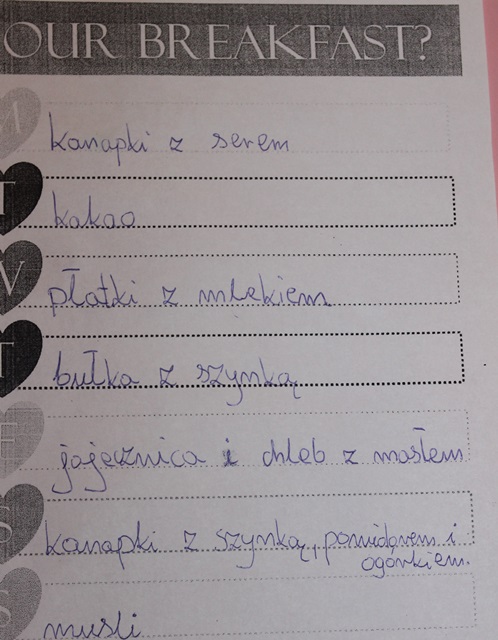 OUR BREAKFAST?
M
kanapki z serem
T
kakao
W
płatki z mlekiem
T
bułka z szynką
F
jajecznica i chleb z masłem
S
kanapki z szynką, pomidorem i
ogórkiem.
S
musli